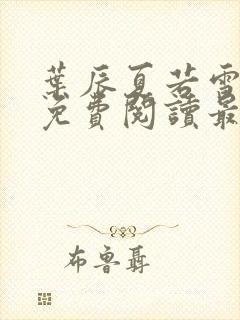 葉辰夏若雪
免費閱讀最
布魯聶